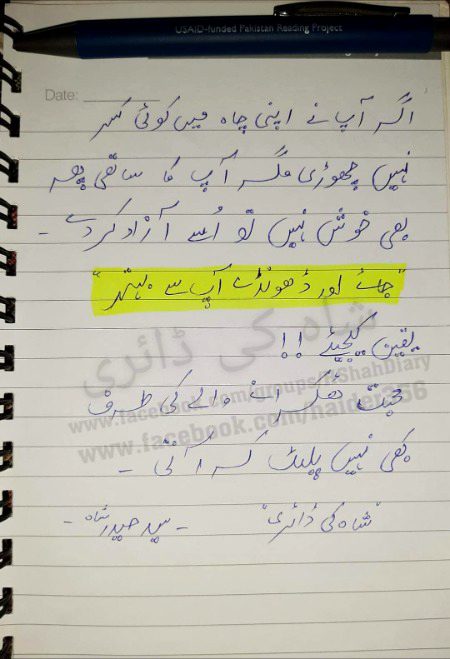 USAID-funded Pakistan Reading Project
Date:
اگر آپ نے اپنی چاہ میں کوئی کسر
نہیں چھوڑی مگر آپ کا ساتھی پھر
بھی خوش نہیں تو اُسے آزاد کر دے -
"جائے اور ڈھونڈے آپ سے بہتر"
یقین کیجیئے !!
محبت ٹھکرانے والے کی طرف
کبھی نہیں پلٹ کر آتی -
"شاہ کی ڈائری" - سید حیدر شاہ -
شاہ کی ڈائری
www.facebook.com/groups/HShahDiary
www.facebook.com/haider366